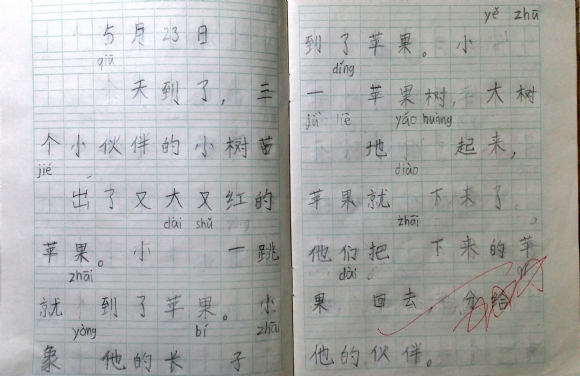 5月23日
qiū
天到了，三
个小伙伴的小树苗
jié
出了又大又红的
dài shǔ
苹果。小 一跳
zhāi
就 到了苹果。小
yòng bí zhū
象 他的长 子
到了苹果。小
yě zhū
dǐng
一 苹果树，大树
jù liè yáo huàng
地 起来，
diào
苹果就 下来了。
zhāi
他们把 下来的苹
dài
果 回去 分给
他的伙伴。